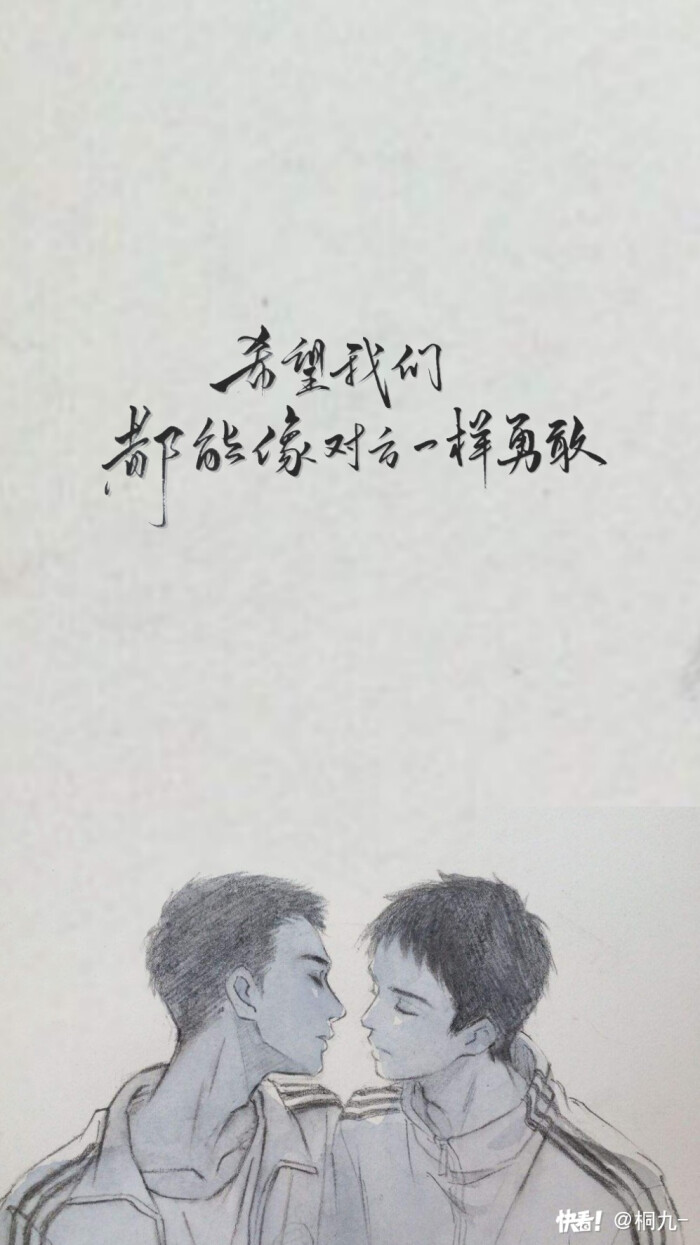 希望我们
都能像对方一样勇敢
快看! @桐九-